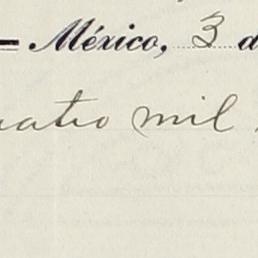 México, 3 d
uatro mil